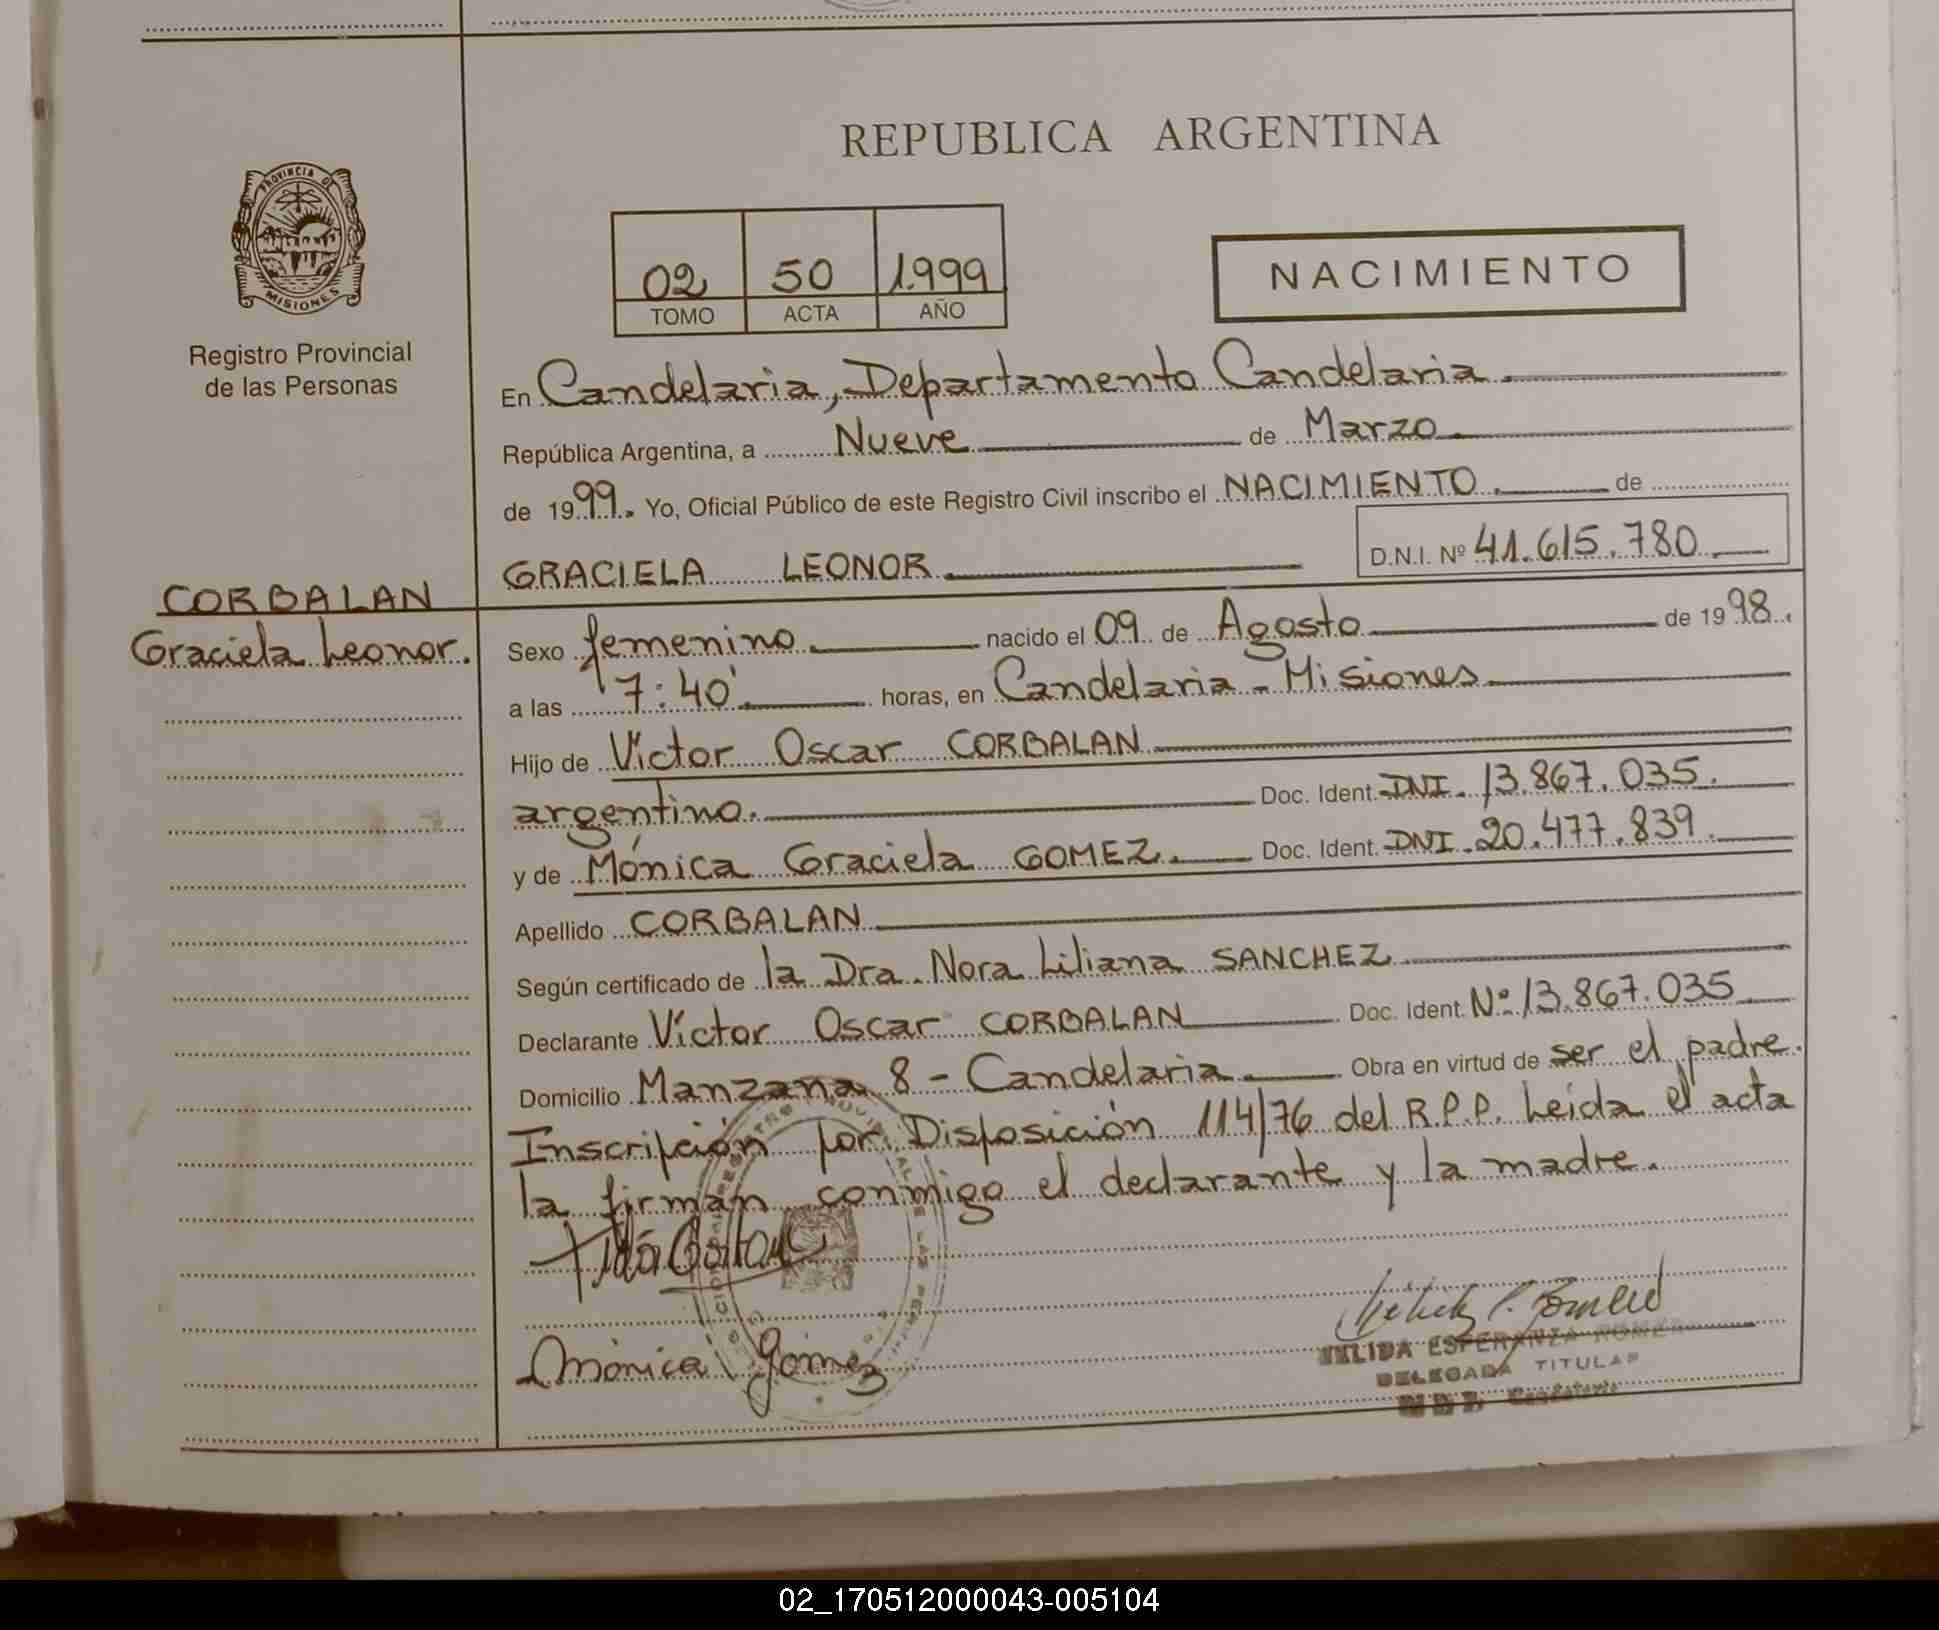 REPUBLICA ARGENTINA
PROVINCIA DE
MISIONES
Registro Provincial
de las Personas
02 50 1.999
TOMO ACTA AÑO
NACIMIENTO
En Candelaria, Departamento Candelaria.
República Argentina, a Nueve de Marzo.
de 1999. Yo, Oficial Público de este Registro Civil inscribo el NACIMIENTO. de
GRACIELA LEONOR
D.N.I. Nº 41.615.780
CORBALAN
Graciela Leonor.
Sexo femenino nacido el 09 de Agosto de 1998.
a las 7:40' horas, en Candelaria - Misiones
Hijo de Víctor Oscar CORBALAN
argentino. Doc. Ident. DNI. 13.867.035.
y de Mónica Graciela GOMEZ. Doc. Ident. DNI. 20.477.839.
Apellido CORBALAN
Según certificado de la Dra. Nora Liliana SANCHEZ
Declarante Víctor Oscar CORBALAN Doc. Ident. Nº 13.867.035
Domicilio Manzana 8 - Candelaria. Obra en virtud de ser el padre.
Inscripción por Disposición 114/76 del R.P.P. Leída el acta
la firman conmigo el declarante y la madre.
Mónica Gómez
ESPERANZA
DELEGADA TITULAR
02_170512000043-005104